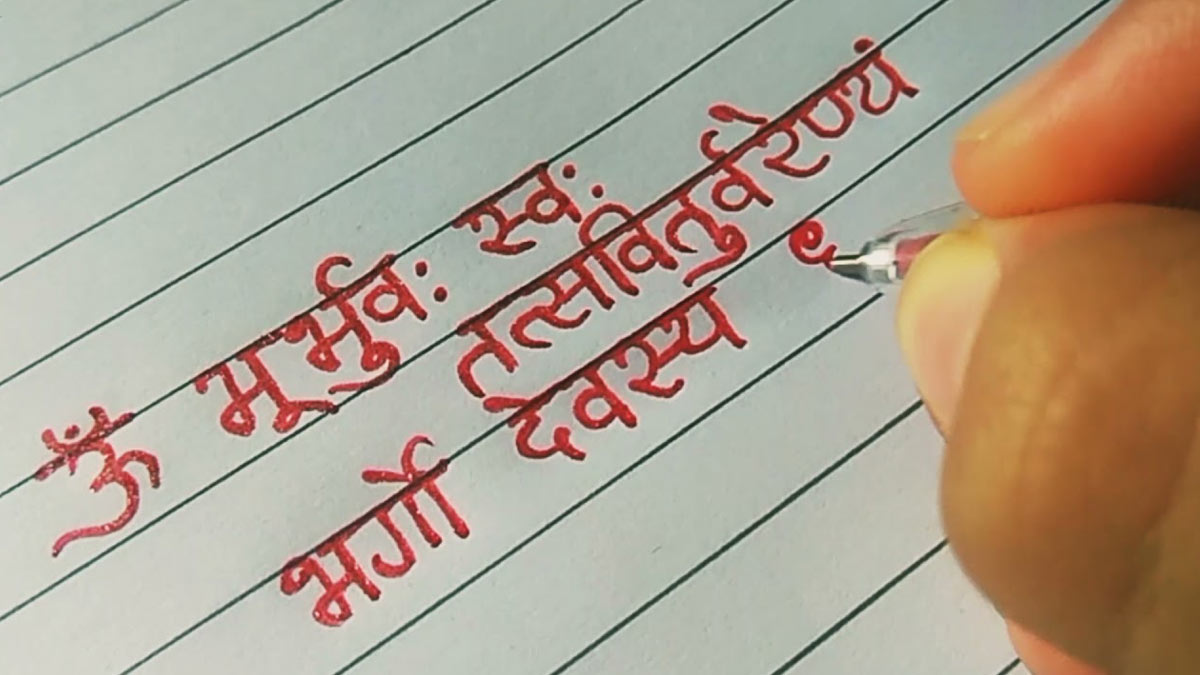 ॐ भूर्भुवः स्वः
तत्सवितुर्वरेण्यं
भर्गो देवस्य